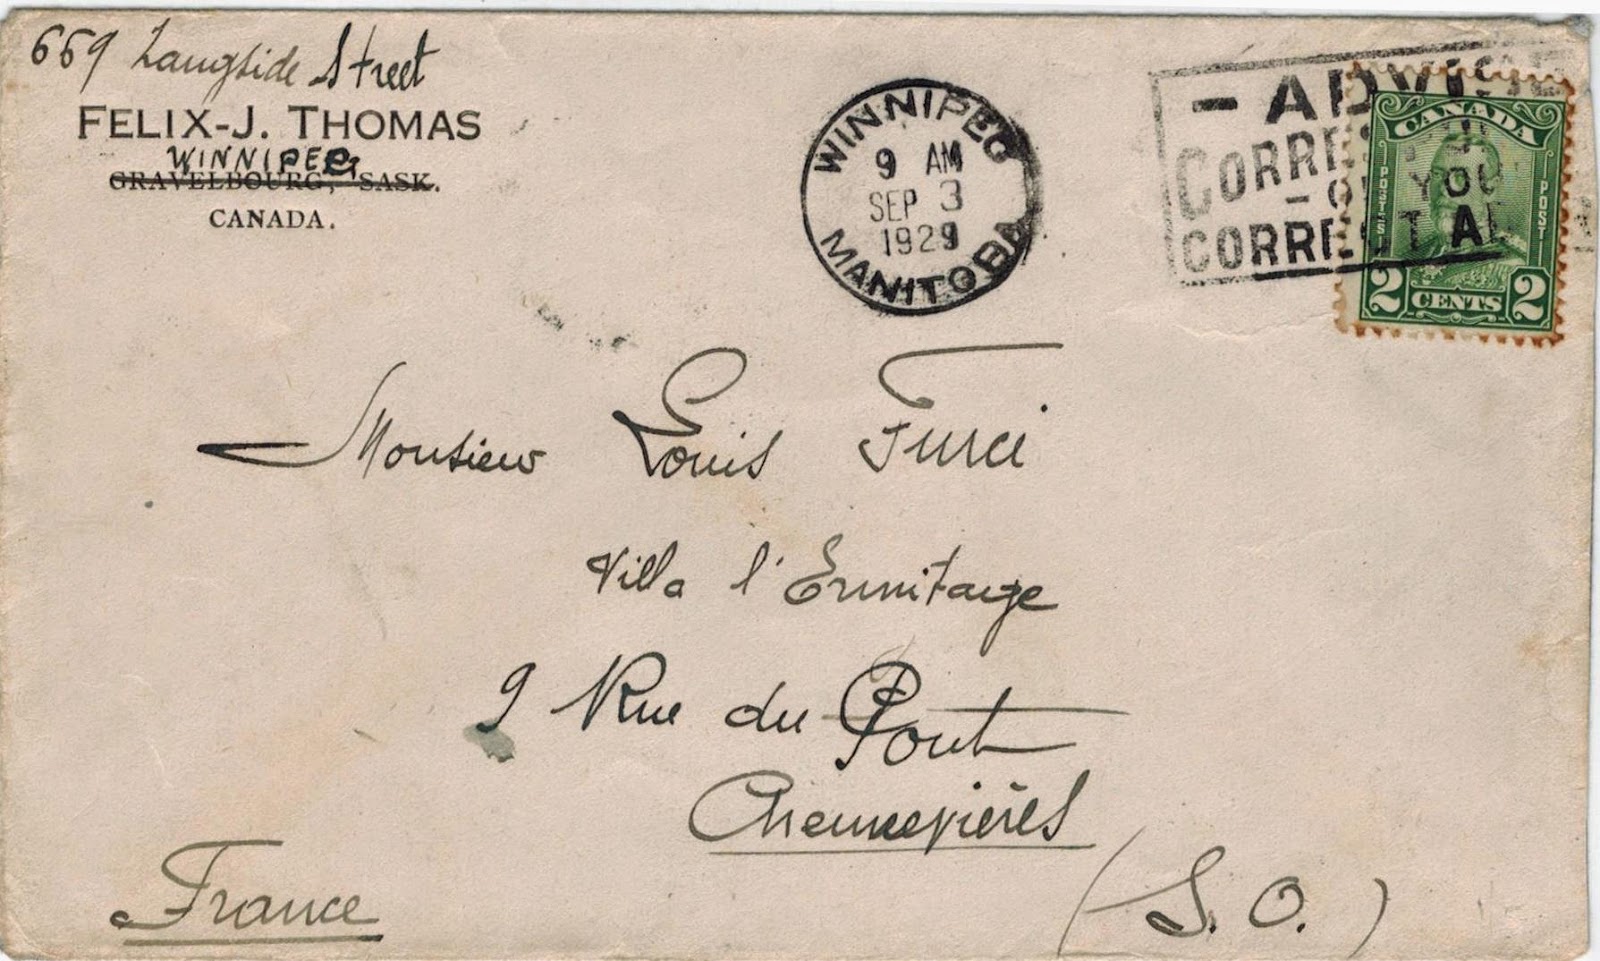 669 Langside Street
FELIX-J. THOMAS
WINNIPEG
GRAVELBOURG, SASK.
CANADA.
WINNIPEG
9 AM
SEP 3
1929
MANITOBA
- ADVISE
CORRES
- OF YOUR
CORRECT AD
CANADA
POSTES
POSTAGE
2 CENTS 2
Monsieur Louis Turci
Villa l'Ermitage
9 Rue du Pont
Chennevières
(S. O.)
France